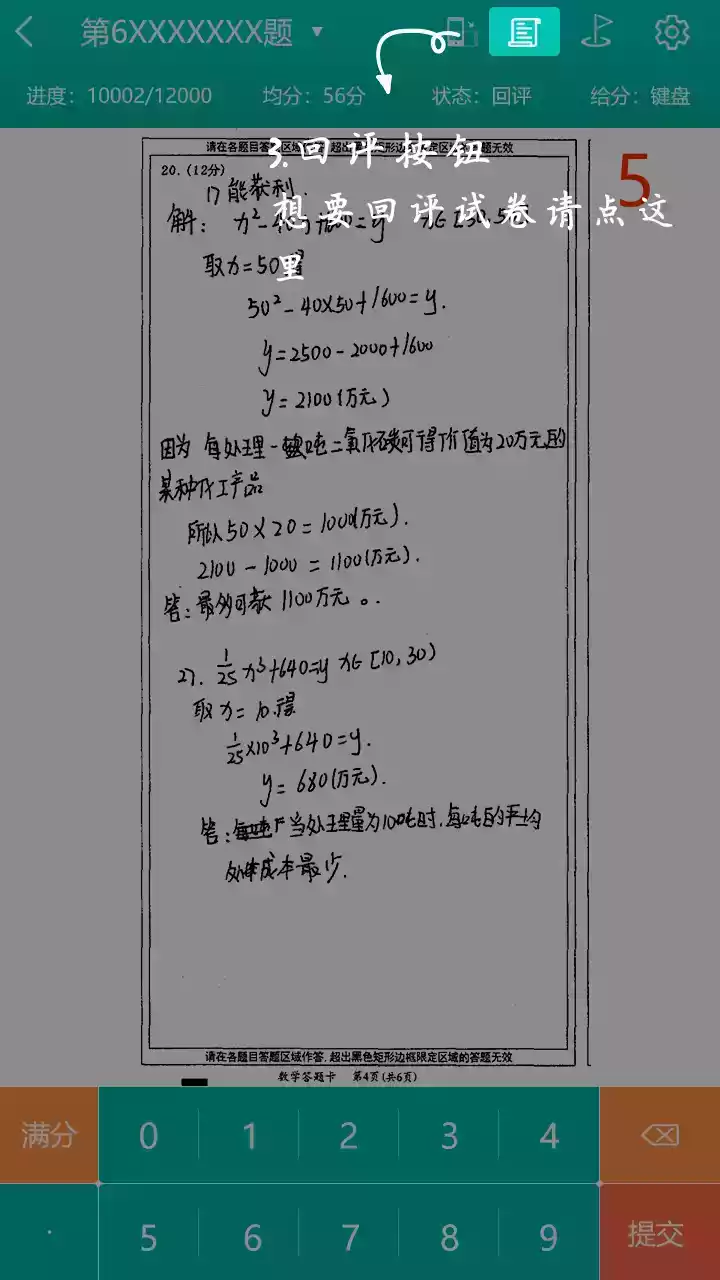 第6XXXXXXX题 ▼
进度：10002/12000 均分：56分 状态：回评 给分：键盘
请在各题目答题区域作答，超出黑色矩形边框限定区域的答题无效
3.回评按钮
想要回评试卷请点这
里
5
20.（12分）
1）能获利.
解：
取x=50得
50²-40×50+1600=y.
y=2500-2000+1600
y=2100(万元)
因为 每处理一吨二氧化碳可得价值为20万元的
某种化工产品
所以50×20=1000(万元).
2100-1000=1100(万元).
答：最多可获1100万元。.
2). 1/25 x³+640=y x∈[10,30)
取x=10.得
1/25×10³+640=y.
y=680(万元).
答：当处理量为10吨时.每吨的平均
成本最少.
请在各题目答题区域作答，超出黑色矩形边框限定区域的答题无效
数学答题卡 第4页(共6页)
满分 0 1 2 3 4
. 5 6 7 8 9 提交